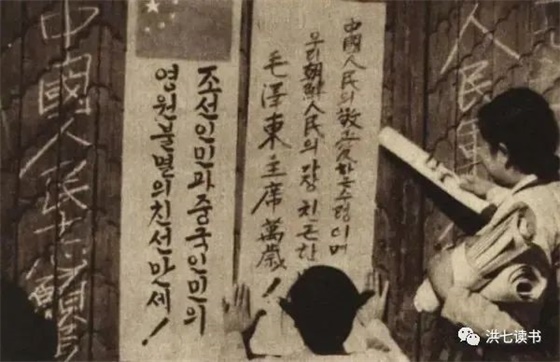 人民軍
中國人民의敬愛하는수령이며
우리朝鮮人民의가장친근한
毛泽東主席 萬歲!
조선인민과중국인민의
영원불멸의친선만세!
中國人民志願
洪七读书